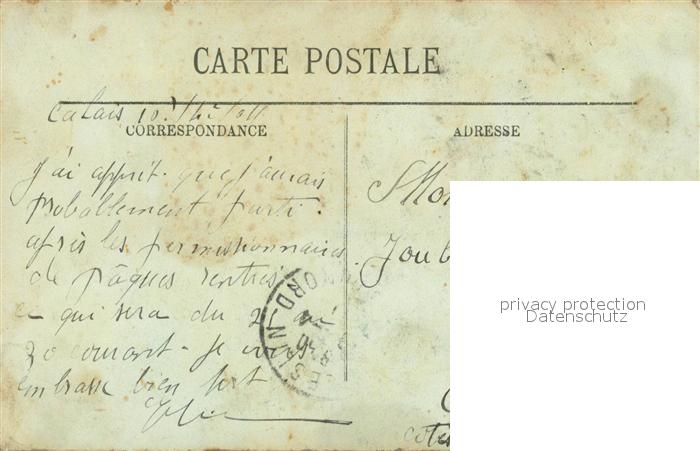 CARTE POSTALE
Calais
CORRESPONDANCE
ADRESSE
J'ai apprit que j'aurais
proballement parti
après les permissionnaires
de pâques rentrés
ce qui sera du 25 au
30 courant. Je vous
embrasse bien fort
privacy protection
Datenschutz